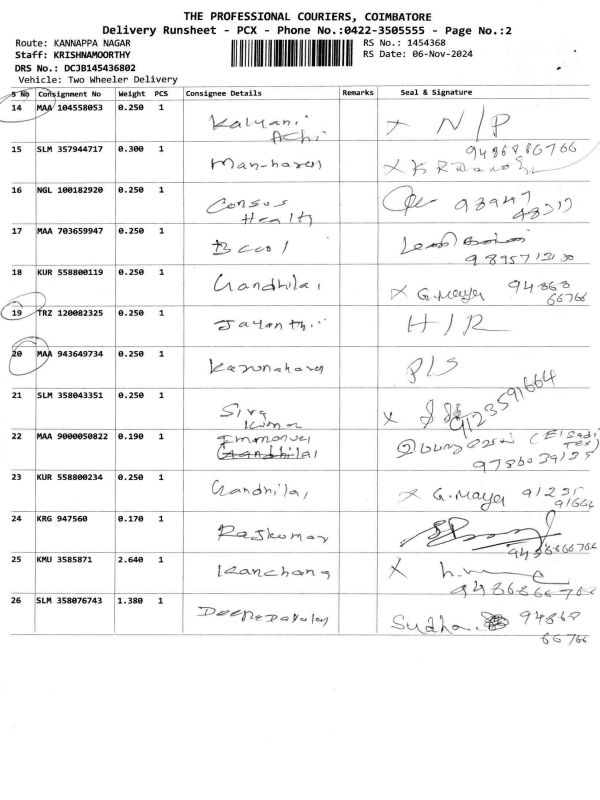 THE PROFESSIONAL COURIERS, COIMBATORE
Delivery Runsheet - PCX - Phone No.:0422-3505555 - Page No.:2
Route: KANNAPPA NAGAR
RS No.: 1454368
Staff: KRISHNAMOORTHY
RS Date: 06-Nov-2024
DRS No.: DCJB145436802
Vehicle: Two Wheeler Delivery
S No Consignment No Weight PCS Consignee Details Remarks Seal & Signature
14 MAA 104558053 0.250 1 Kalyani Achi x N/P
15 SLM 357944717 0.300 1 Manoharan 9486886766
16 NGL 100182920 0.250 1 Consus Health 98947
17 MAA 703659947 0.250 1
18 KUR 558800119 0.250 1 Gandhilal x G. Maya 94868 66766
19 TRZ 120082325 0.250 1 Jayanthi H/R
20 MAA 943649734 0.250 1 Karunakaran P/S
21 SLM 358043351 0.250 1 Siva Kumar x 9123591664
22 MAA 9000050822 0.190 1 Immanuel Gandhilal Tex)
23 KUR 558800234 0.250 1 Gandhilal x G. Maya 91235 91664
24 KRG 947560 0.170 1 Rajkumar
25 KMU 3585871 2.640 1 Kanchana x
26 SLM 358076743 1.380 1 Sudha 94868 66766